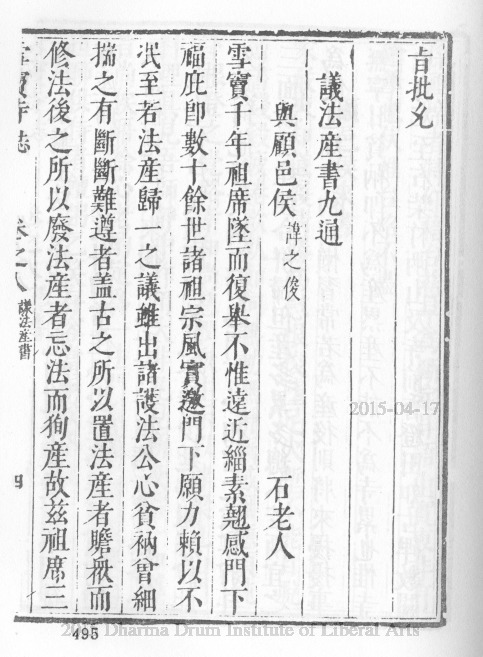 旨批允
議法産書九通
與顧邑侯 諱之俊 石老人
雪竇千年祖席墜而復舉不惟遠近緇素翹感門下
福庇卽數十餘世諸祖宗風實邀門下願力賴以不
泯至若法産歸一之議雖出諸護法公心貧衲曾細
揣之有斷斷難遵者盖古之所以置法産者贍衆而
修法後之所以廢法産者忘法而狥産故兹祖席三
雪竇寺誌 卷之八 議法産書 四
2015-04-17
495
2015 Dharma Drum Institute of Liberal Arts